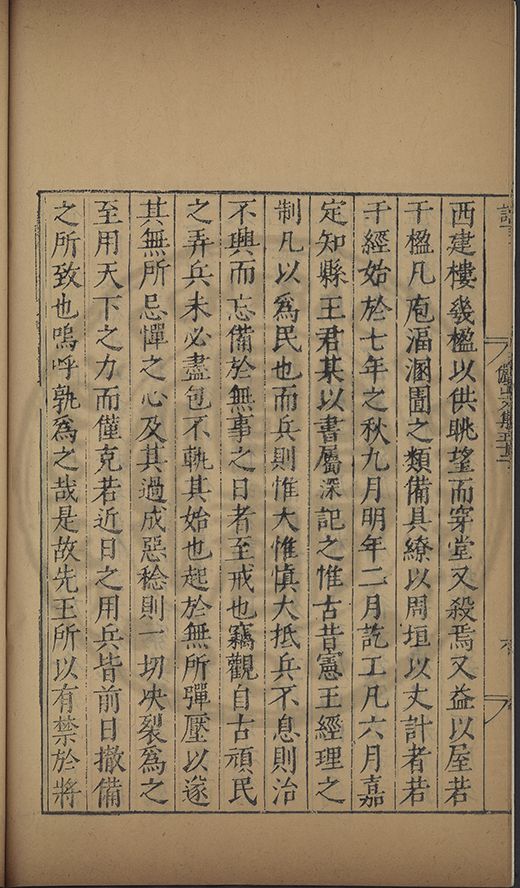 西建樓幾楹以供眺望而穿堂又殺焉又益以屋若
干楹凡庖湢溷圊之類備具繚以周垣以丈計者若
干經始於七年之秋九月明年二月訖工凡六月嘉
定知縣王君某以書屬深記之惟古昔憲王經理之
制凡以爲民也而兵則惟大惟慎大抵兵不息則治
不興而忘備於無事之日者至戒也竊觀自古頑民
之弄兵未必盡包不軌其始也起於無所彈壓以遂
其無所忌憚之心及其過成惡稔則一切决裂爲之
至用天下之力而僅克若近日之用兵皆前日撤備
之所致也嗚呼孰爲之哉是故先王所以有禁於將